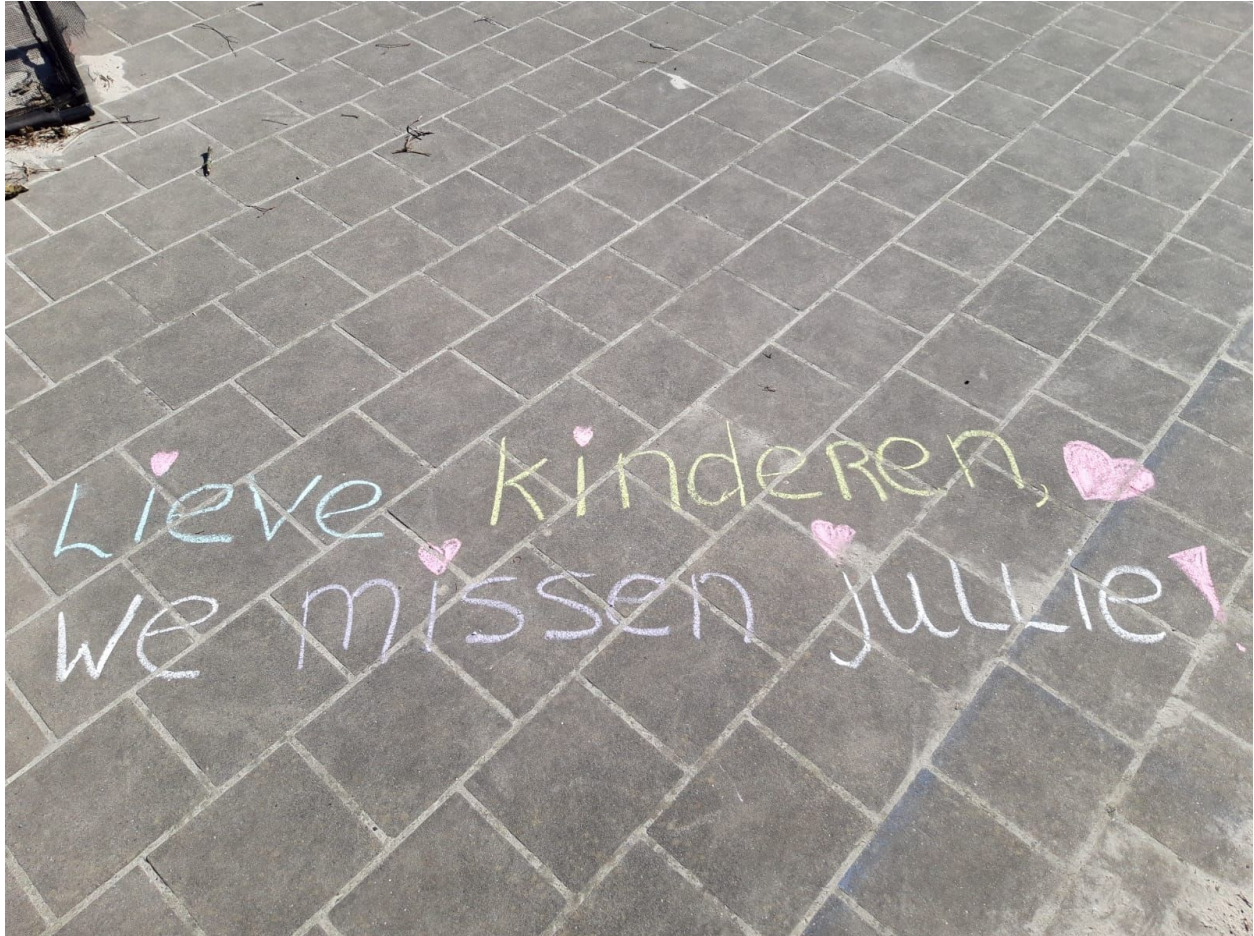 Lieve kinderen,
We missen jullie!